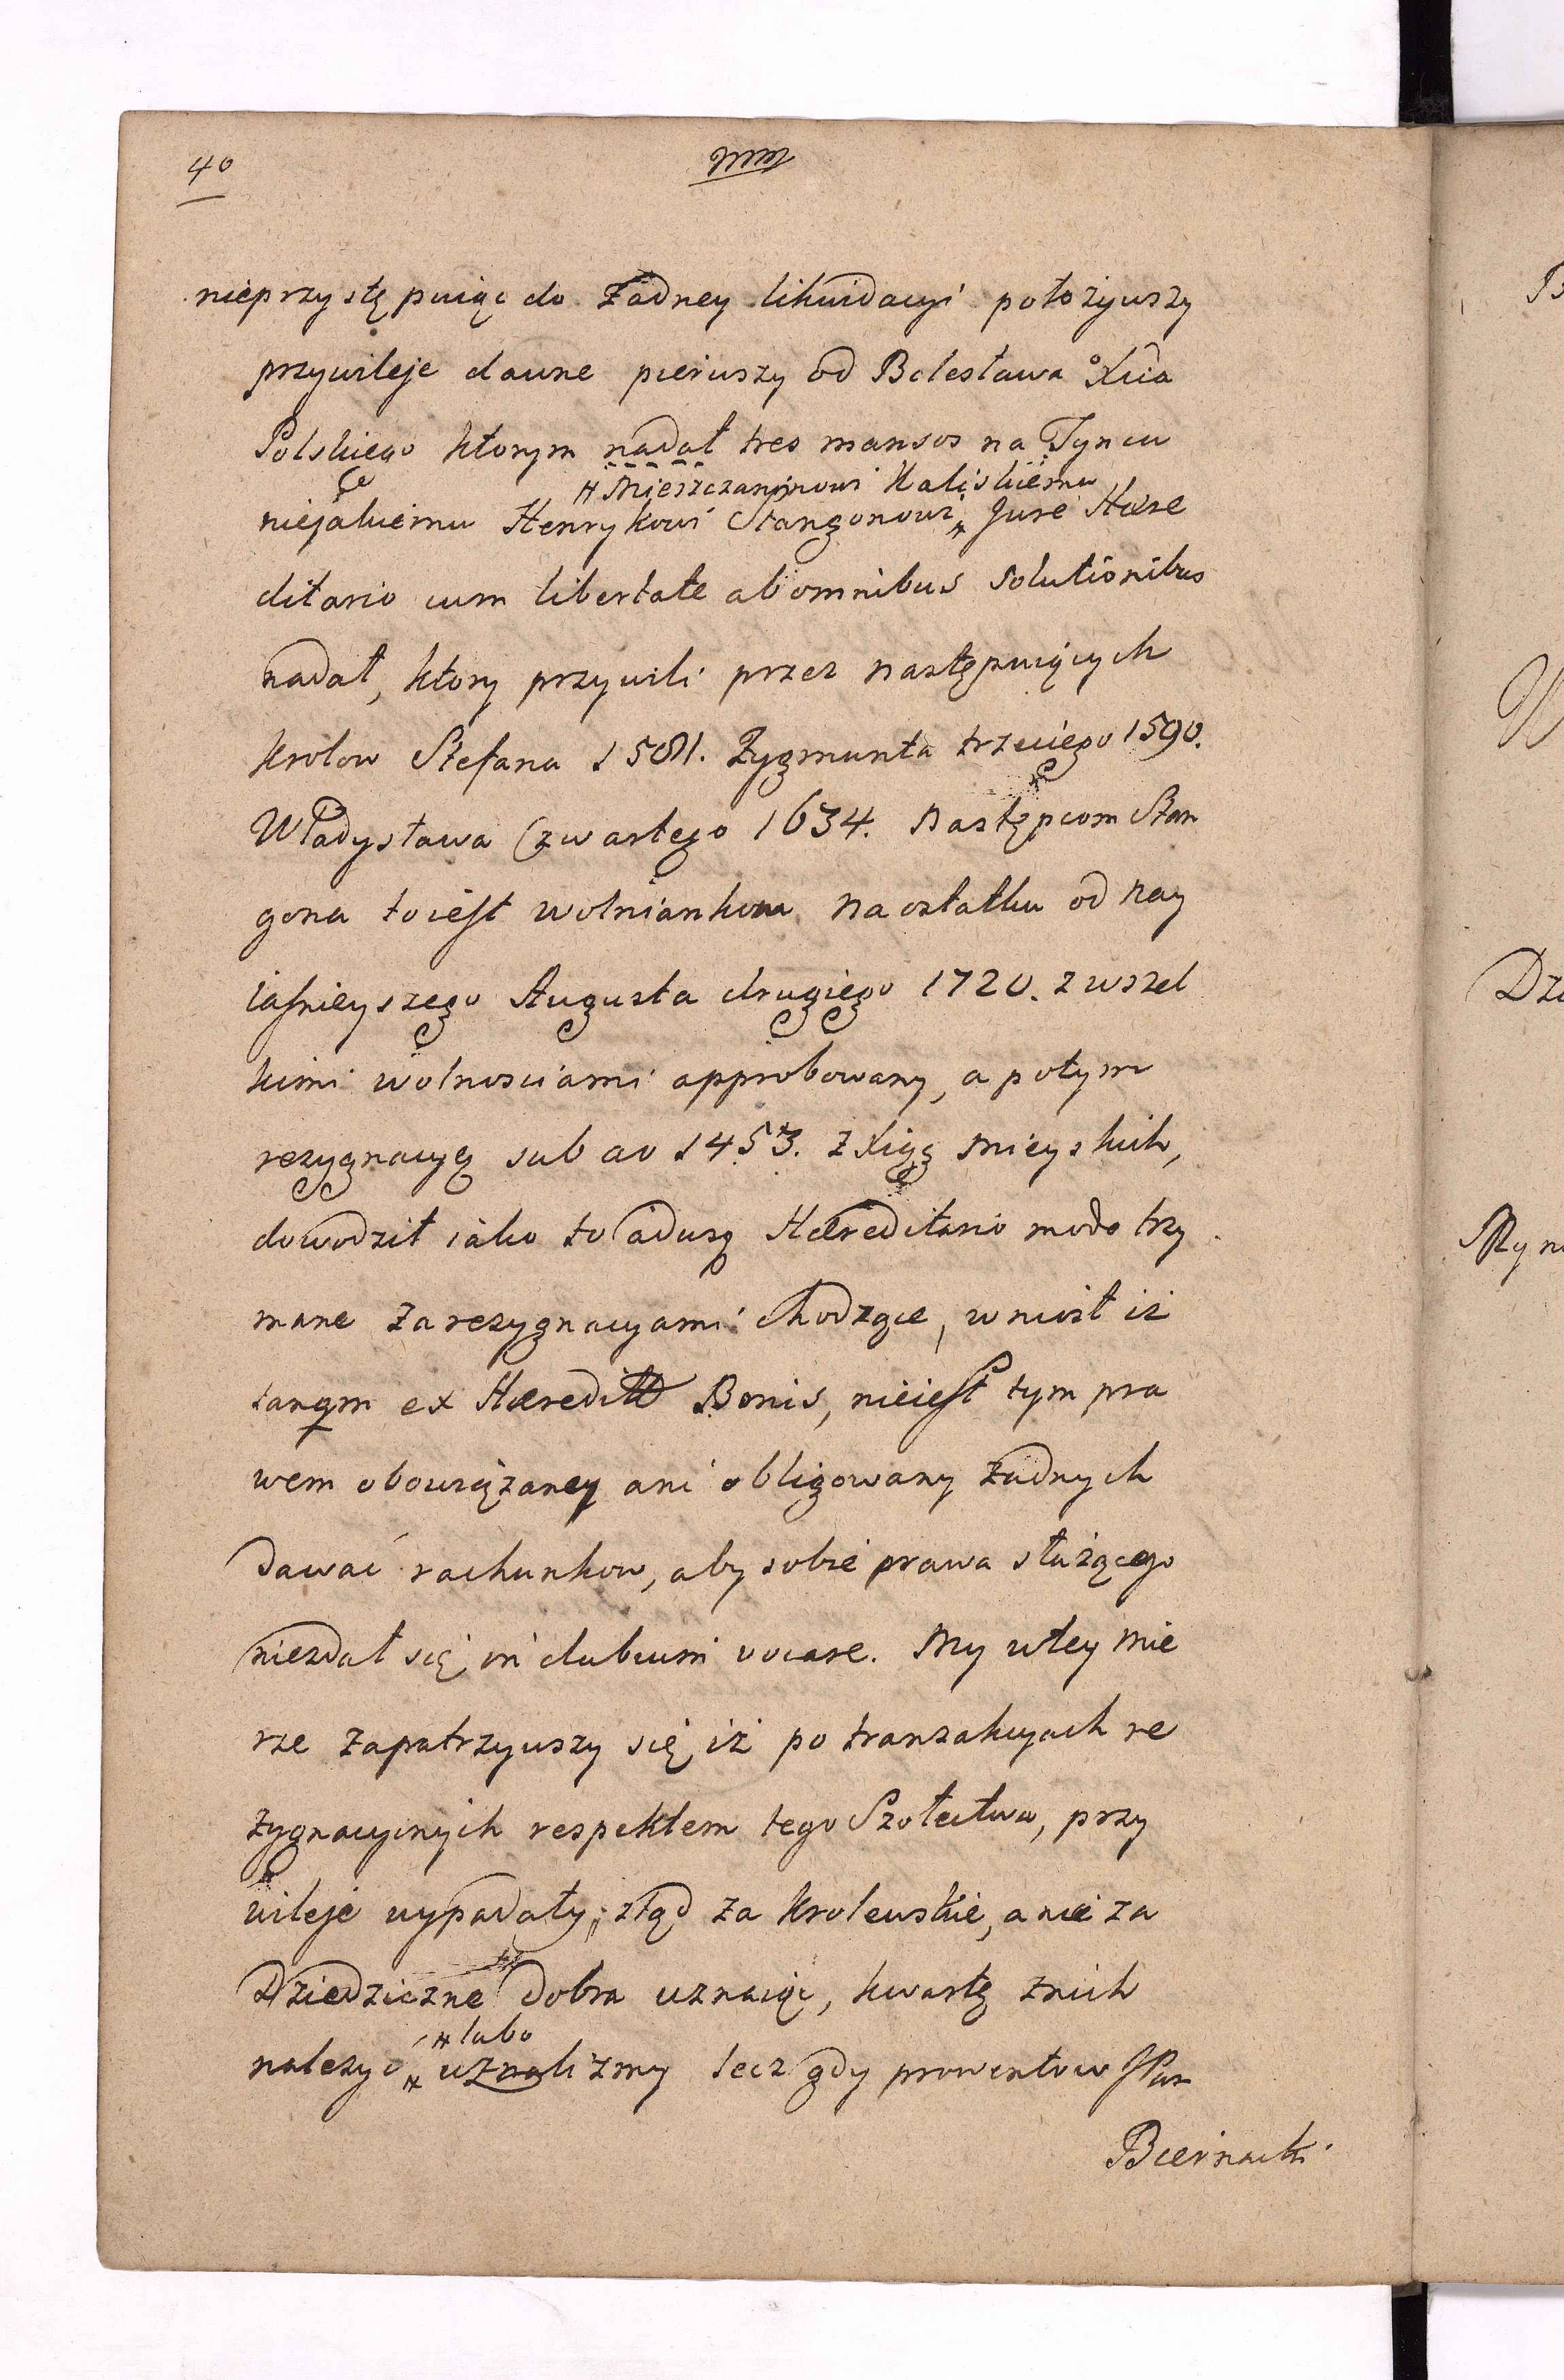 40
nieprzystępuiąc do Żadney likwidacyi położywszy
przywileje dawne pierwszy od Bolesława Xcia
Polskiego ktorym nadał tres mansos na Tyncu
# Mieszczaninowi Kaliskiemu
niejakiemu Henrykowi Stangonowi # Jure Hære
ditario cum libertate ab omnibus solutionibus
nadał, ktory przywili przez następuiących
Krolow Stefana 1581. Zygmunta trzeciego 1590.
Władysława Czwartego 1634. Następcom Stan
gona toiest wolniankom na ostatku od nay
iasnieyszego Augusta drugiego 1720. z wszel
kimi wolnosciami approbowany, a potym
rezygnacyą sub ao 1453. z Xiąg Mieyskich,
dowodził iako to Hæreditario modo trzy
mane za rezygnacyami chodzące, wniosł iż
tanqm ex Hæreditt Bonis, nieiest tym pra
wem obowiązaney ani obligowany żadnych
dawać rachunkow, aby sobie prawa służącego
niezdał się in dubium vocare. My wtey Mie
rze zapatrzywszy się, iż po tranzakcyach re
zygnacyinych respektem tego Szołectwa, przy
wileje wypadały, ztąd za Krolewskie, a nie za
Dziedziczne dobra uznaiąc, kwartę znich
# lubo
należyć # uznalizmy lecz gdy prowentow JPan
Biernacki